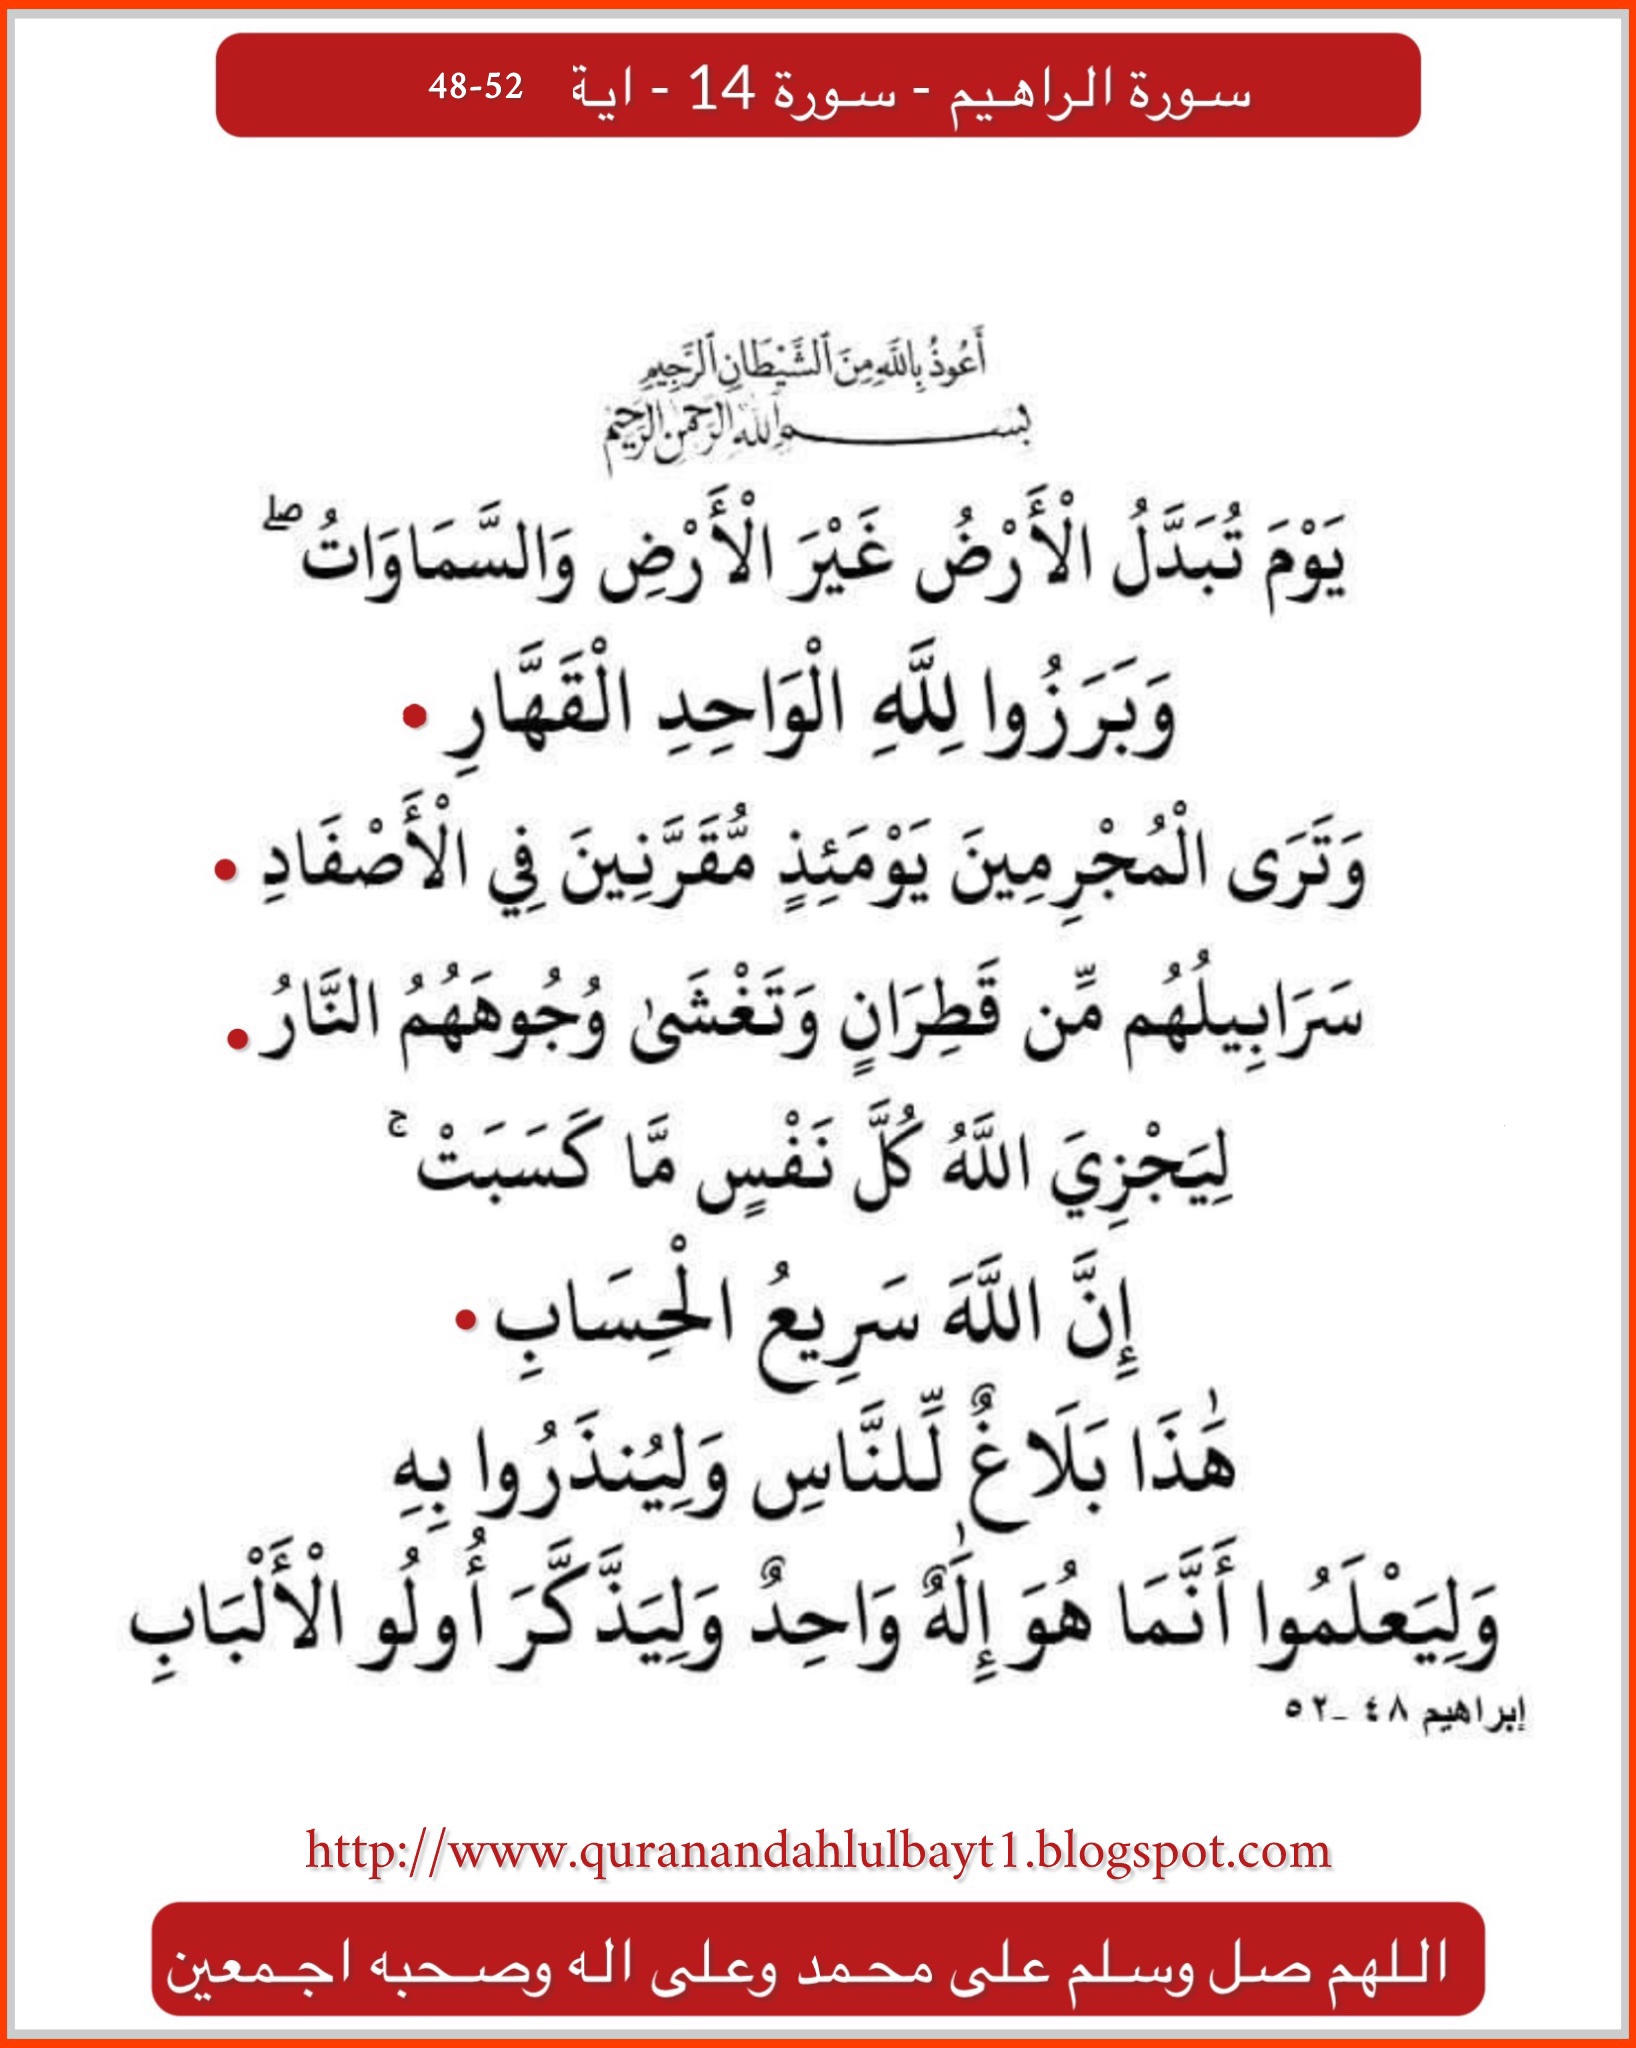 سورة الراهيم - سورة 14 - اية 48-52
أَعُوذُ بِاللَّهِ مِنَ ٱلشَّيْطَانِ ٱلرَّجِيمِ
بسم الله الرحمن الرحيم
يَوْمَ تُبَدَّلُ الْأَرْضُ غَيْرَ الْأَرْضِ وَالسَّمَاوَاتُ ۖ
وَبَرَزُوا لِلَّهِ الْوَاحِدِ الْقَهَّارِ •
وَتَرَى الْمُجْرِمِينَ يَوْمَئِذٍ مُّقَرَّنِينَ فِي الْأَصْفَادِ •
سَرَابِيلُهُم مِّن قَطِرَانٍ وَتَغْشَىٰ وُجُوهَهُمُ النَّارُ •
لِيَجْزِيَ اللَّهُ كُلَّ نَفْسٍ مَّا كَسَبَتْ ۚ
إِنَّ اللَّهَ سَرِيعُ الْحِسَابِ •
هَٰذَا بَلَاغٌ لِّلنَّاسِ وَلِيُنذَرُوا بِهِ
وَلِيَعْلَمُوا أَنَّمَا هُوَ إِلَٰهٌ وَاحِدٌ وَلِيَذَّكَّرَ أُولُو الْأَلْبَابِ
إبراهيم ٤٨ -٥٢
http://www.quranandahlulbayt1.blogspot.com
اللهم صل وسلم على محمد وعلى اله وصحبه اجمعين